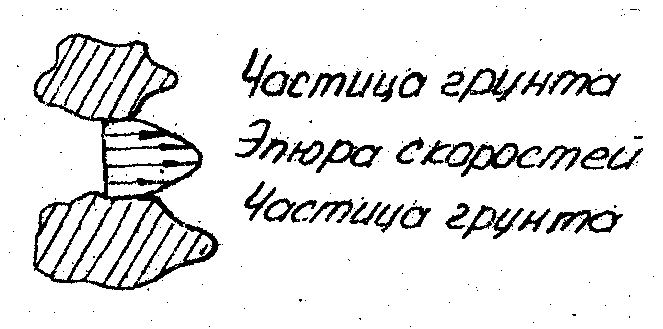 Частица грунта
Эпюра скоростей
Частица грунта